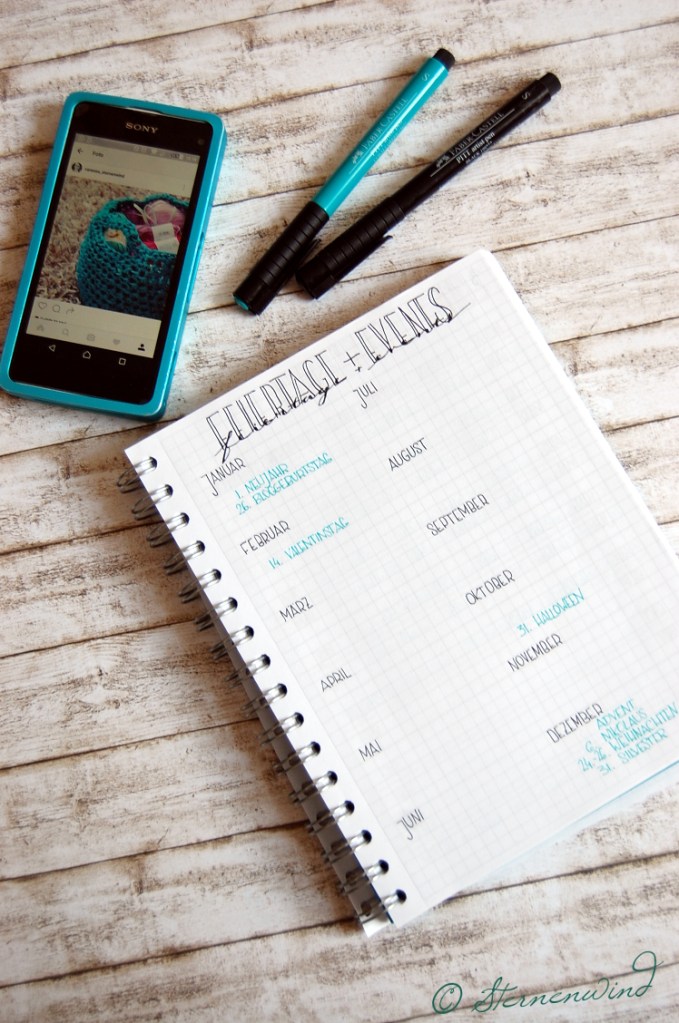 SONY
Foto
FABER CASTELL
FABER CASTELL
PITT artist pen
S
S
FEIERTAGE + EVENTS
feiertage + events
JANUAR
1. NEUJAHR
26. BLOGGEBURTSTAG
FEBRUAR
14. VALENTINSTAG
MÄRZ
APRIL
MAI
JUNI
JULI
AUGUST
SEPTEMBER
OKTOBER
31. HALLOWEEN
NOVEMBER
DEZEMBER
ADVENT
6. NIKOLAUS
24.-26. WEIHNACHTEN
31. SILVESTER
© Sternenwind